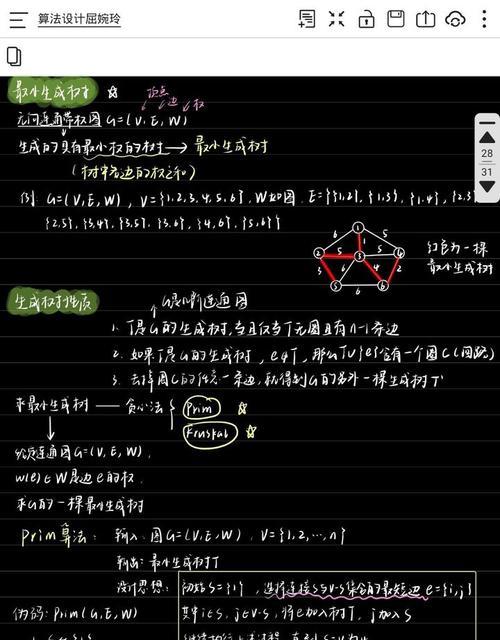 算法设计屈婉玲
最小生成树 ☆ 顶点 边 权
无向连通带权图 G=(V, E, W)
生成的具有最小权的树 → 最小生成树
(树中各边的权之和)
28
31
例. G=(V,E,W), V={1,2,3,4,5,6}, W如图. E={{1,2}, {1,3}, {1,4}, {2,3}
{2,5}, {3,4}, {3,5}, {3,6}, {4,6}, {5,6}}
1
6 5 5
2 5 3 5 4
3 6 4 2
5 6 6
红色为一棵
最小生成树
生成树性质
连通图
1. T是G的生成树,当且仅当T无圈且有n-1条边
2. 如果T是G的生成树, e∉T, 那么T∪{e}含有一个圈C(回路)
3. 去掉圈C的任意一条边,就得到G的另外一棵生成树T'
求最小生成树 —— 贪心法 { Prim ☆
Kruskal ☆
给定连通图G=(V, E, W),
w(e)∈W是边e的权.
求G的一棵最小生成树
Prim算法: 输入. 图G=(V,E,W), V={1,2,…,n}
输出: 最小生成树T
设计思想: 初始S={1}, 选择连接S与V-S集合的最短边e={i,j}
伪码: Prim(G,E,W) 其中i∈S, j∈V-S, 将e加入树T, j加入S